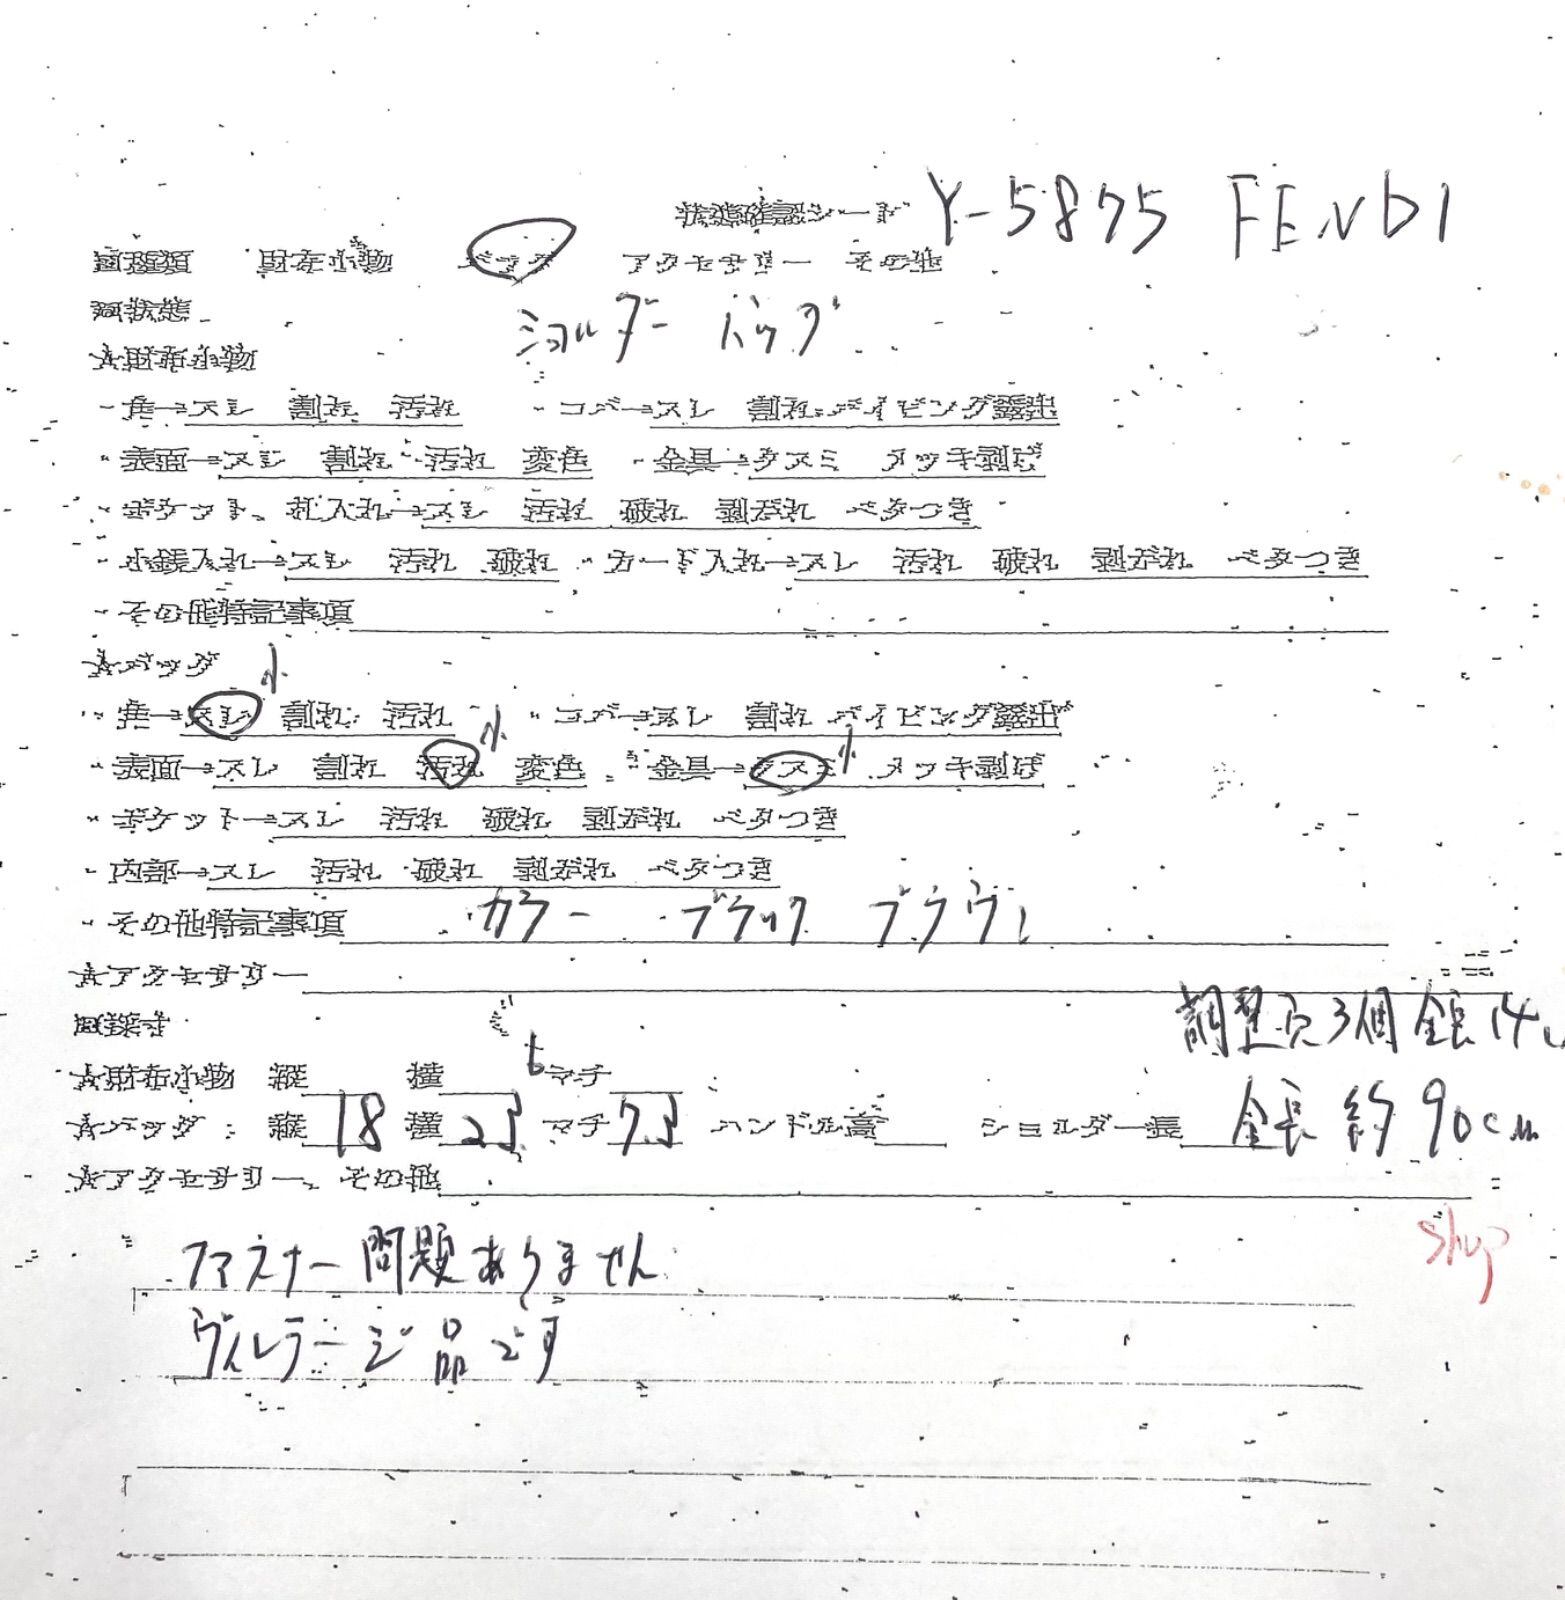 状態確認シート Y-5875 FENDI
■種類 財布小物 バッグ アクセサリー その他
■状態 ショルダーバッグ
☆財布小物
・角→スレ 割れ 汚れ ・コバ→スレ 割れ パイピング露出
・表面→スレ 割れ 汚れ 変色 ・金具→クスミ メッキ剥げ
・ポケット、札入れ→スレ 汚れ 破れ 剥がれ ベタつき
・小銭入れ→スレ 汚れ 破れ ・カード入れ→スレ 汚れ 破れ 剥がれ ベタつき
・その他特記事項
☆バッグ
・角→スレ 小 割れ 汚れ ・コバ→スレ 割れ パイピング露出
・表面→スレ 割れ 汚れ 小 変色 ・金具→クスミ 小 メッキ剥げ
・ポケット→スレ 汚れ 破れ 剥がれ ベタつき
・内部→スレ 汚れ 破れ 剥がれ ベタつき
・その他特記事項 カラー ブラック ブラウン
☆アクセサリー
調整穴3個 全長14
☆財布小物 縦 横 マチ
☆バッグ: 縦 18 横 25 マチ 7.5 ハンドル高 ショルダー長 全長約90cm
☆アクセサリー、その他
Shop
ファスナー問題ありません
ヴィンテージ品です